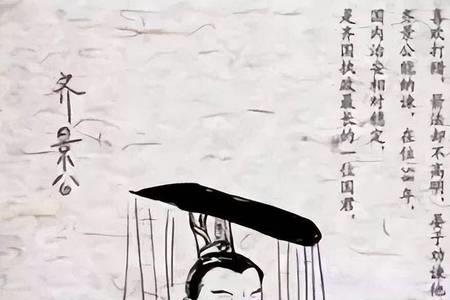 喜欢打猎，箭法却不高明，晏子劝谏他
齐景公能纳谏，在位58年，
国内治安相对稳定，
是齐国执政最长的一位国君。
齐景公